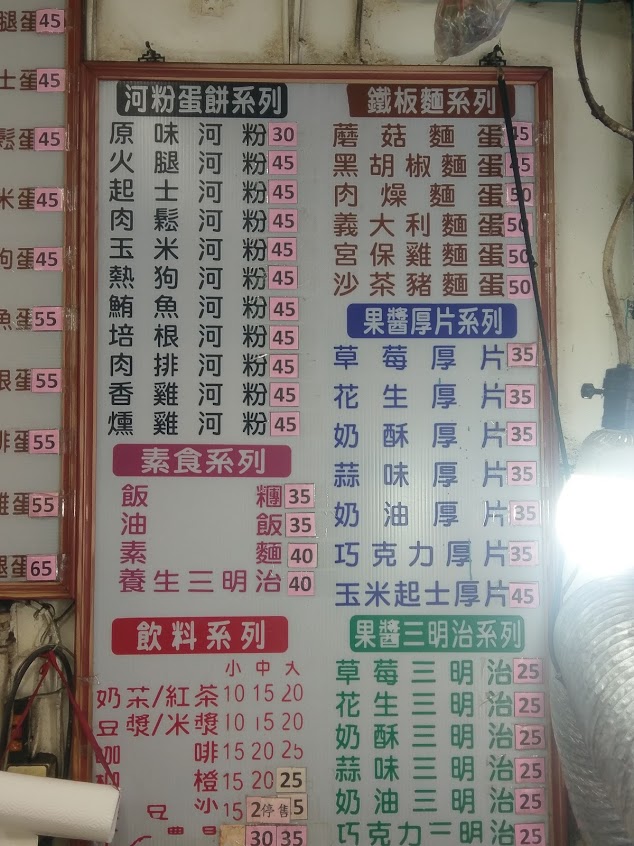 腿蛋45
士蛋45
鬆蛋45
米蛋45
狗蛋45
魚蛋55
根蛋55
排蛋55
雞蛋55
腿蛋65
河粉蛋餅系列
原味河粉30
火腿河粉45
起士河粉45
肉鬆河粉45
玉米河粉45
熱狗河粉45
鮪魚河粉45
培根河粉45
肉排河粉45
香雞河粉45
燻雞河粉45
素食系列
飯糰35
油飯35
素麵40
養生三明治40
飲料系列
小中大
奶茶/紅茶101520
豆漿/米漿101520
咖啡152025
橙152025
豆沙15 2停售5
30 35
鐵板麵系列
蘑菇麵蛋45
黑胡椒麵蛋45
肉燥麵蛋50
義大利麵蛋50
宮保雞麵蛋50
沙茶豬麵蛋50
果醬厚片系列
草莓厚片35
花生厚片35
奶酥厚片35
蒜味厚片35
奶油厚片35
巧克力厚片35
玉米起士厚片45
果醬三明治系列
草莓三明治25
花生三明治25
奶酥三明治25
蒜味三明治25
奶油三明治25
巧克力三明治25